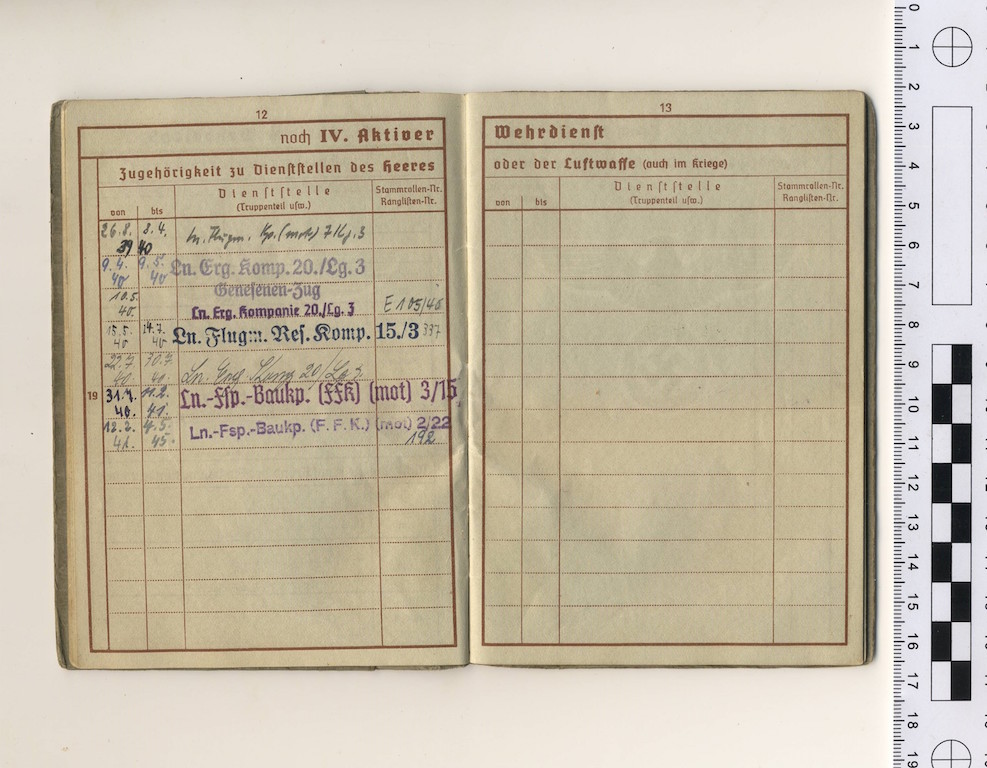 12
noch IV. Aktiver
Zugehörigkeit zu Dienststellen des Heeres
Dienststelle
(Truppenteil usw.)
Stammrollen-Nr.
Ranglisten-Nr.
von bis
26.8. 8.4.
39 40
9.4. 9.5. Ln. Erg. Komp. 20./Lg. 3
40 40
Genesenen-Zug
10.5.
40. Ln. Erg. Kompanie 20./Lg. 3 E 105/40
15.5. 14.7. Ln. Flugm. Res. Komp. 15./3 337
40 40
22.7. 30.7. Ln. Erg. 20/Lg 3
40. 40.
19 31.7. 11.2. Ln.-Fsp.-Baukp. (FFK) (mot) 3/15
40. 41.
12.2. 4.5. Ln.-Fsp.-Baukp. (F. F. K.) (mot) 2/22
41. 45. 192
13
Wehrdienst
oder der Luftwaffe (auch im Kriege)
Dienststelle
(Truppenteil usw.)
Stammrollen-Nr.
Ranglisten-Nr.
von bis
0
1
2
3
4
5
6
7
8
9
10
11
12
13
14
15
16
17
18
19